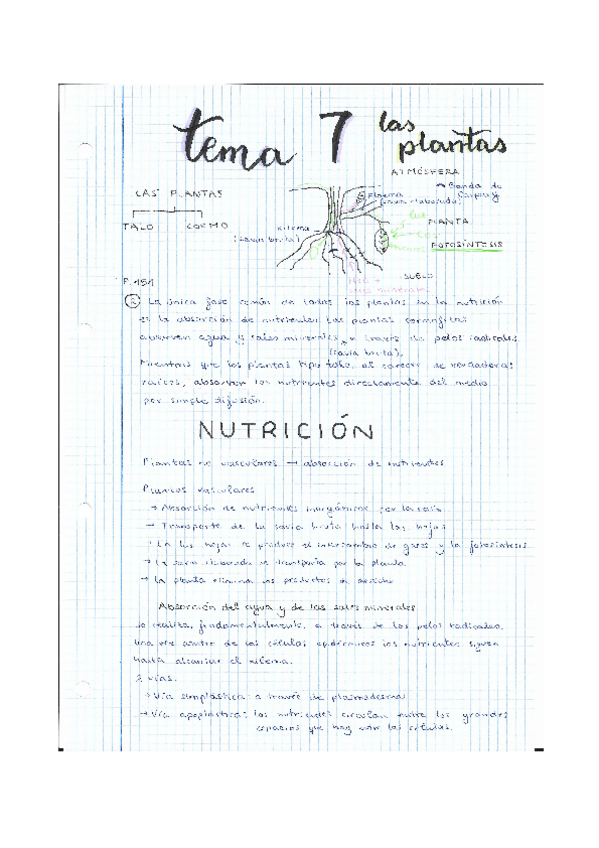 tema 7 las plantas
ATMÓSFERA
LAS PLANTAS
TALO CORMO
→ Banda de Caspary
floema
(savia elaborada)
xilema
(savia bruta)
luz
PLANTA
FOTOSÍNTESIS
SUELO
sales minerales
P. 151
② La única fase común de todas las plantas en la nutrición
es la absorción de nutrientes. Las plantas cormofitas
absorben agua y sales minerales a través de pelos radicales
(savia bruta).
Mientras que las plantas tipo talo, al carecer de verdaderas
raíces, absorben los nutrientes directamente del medio
por simple difusión.
NUTRICIÓN
Plantas no vasculares → absorción de nutrientes
Plantas vasculares
→ Absorción de nutrientes inorgánicos por la raíz.
→ Transporte de la savia bruta hasta las hojas
→ En las hojas se produce el intercambio de gases y la fotosíntesis
→ La savia elaborada se transporta por la planta
→ La planta elimina los productos de desecho
Absorción del agua y de las sales minerales
se realiza, fundamentalmente, a través de los pelos radicales.
Una vez dentro de las células epidérmicas los nutrientes siguen
hasta alcanzar el xilema.
2 vías:
→ Vía simplástica: a través de plasmodesmos
→ Vía apoplástica: los nutrientes circulan entre los grandes
espacios que hay entre las células.